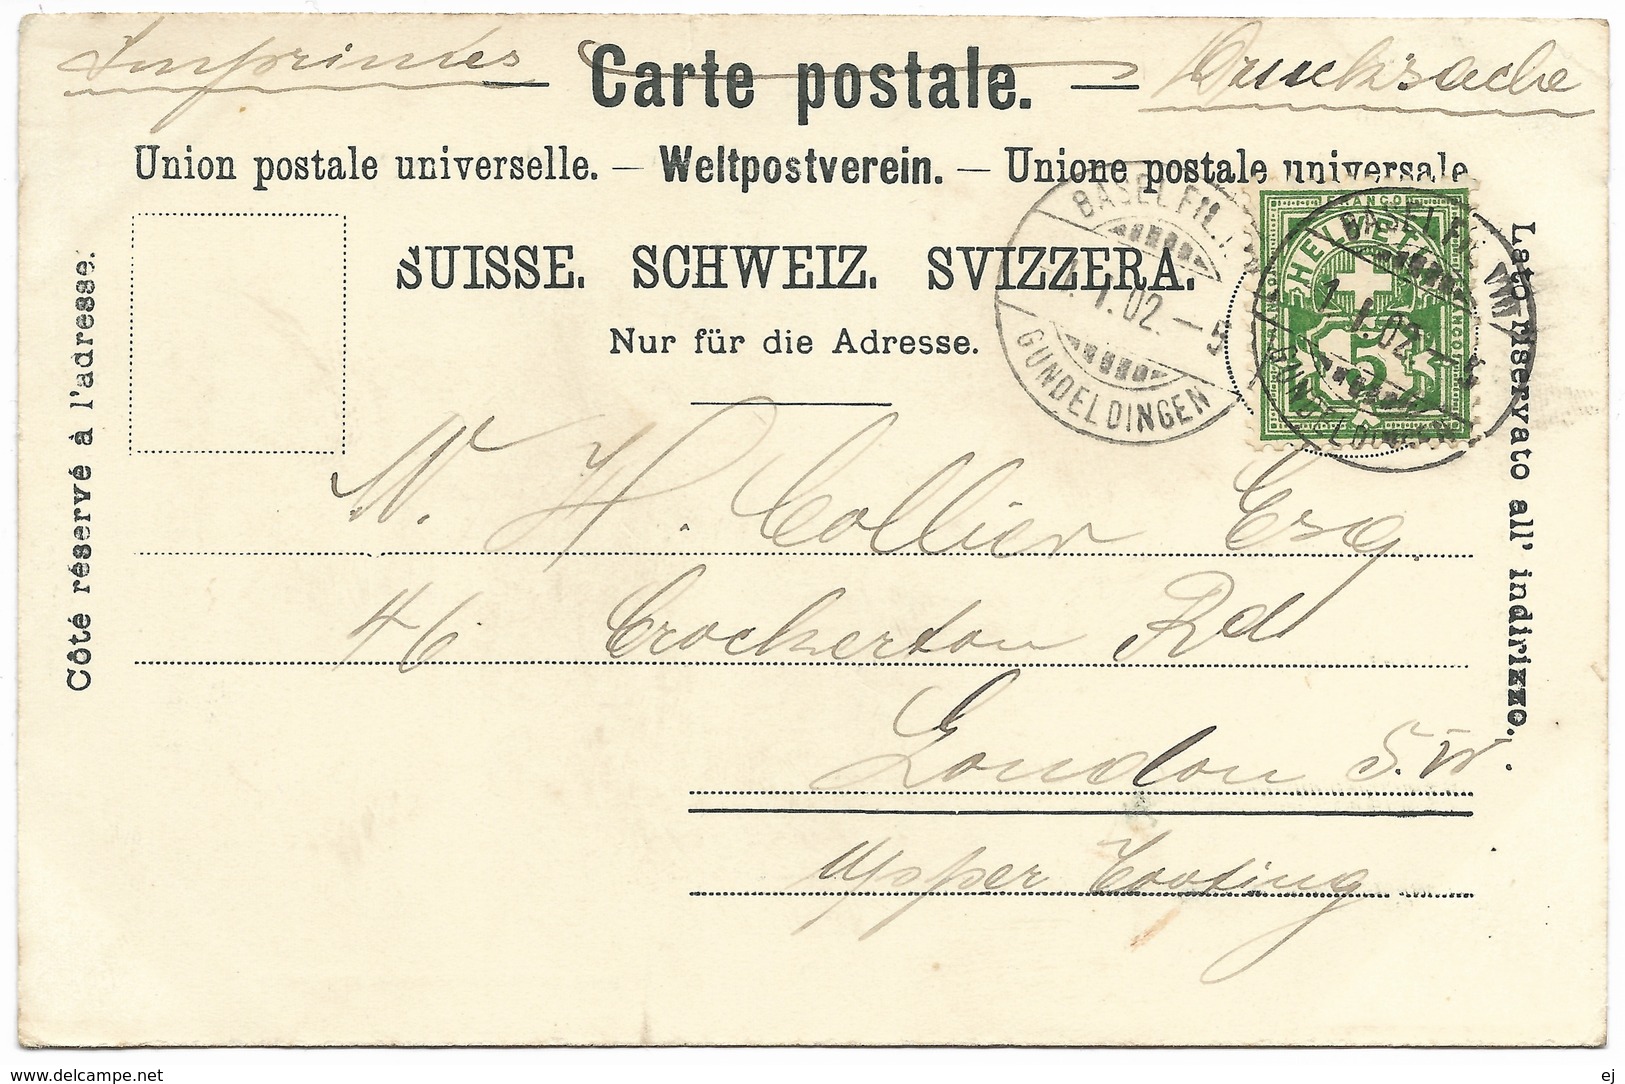 Imprimés Carte postale. — Drucksache
Union postale universelle. — Weltpostverein. — Unione postale universale
SUISSE. SCHWEIZ. SVIZZERA.
Nur für die Adresse.
Côté réservé à l'adresse.
Lato riservato all' indirizzo.
BASEL FIL.
1.1.02.–5
GUNDELDINGEN
FRANCO
HELVETIA
5
BASEL FIL. VIII
1.1.02.–5
GUNDELDINGEN
W. H. Collier Esq.
46 Crockerton Rd
London S.W.
Upper Tooting
www.delcampe.net
ej